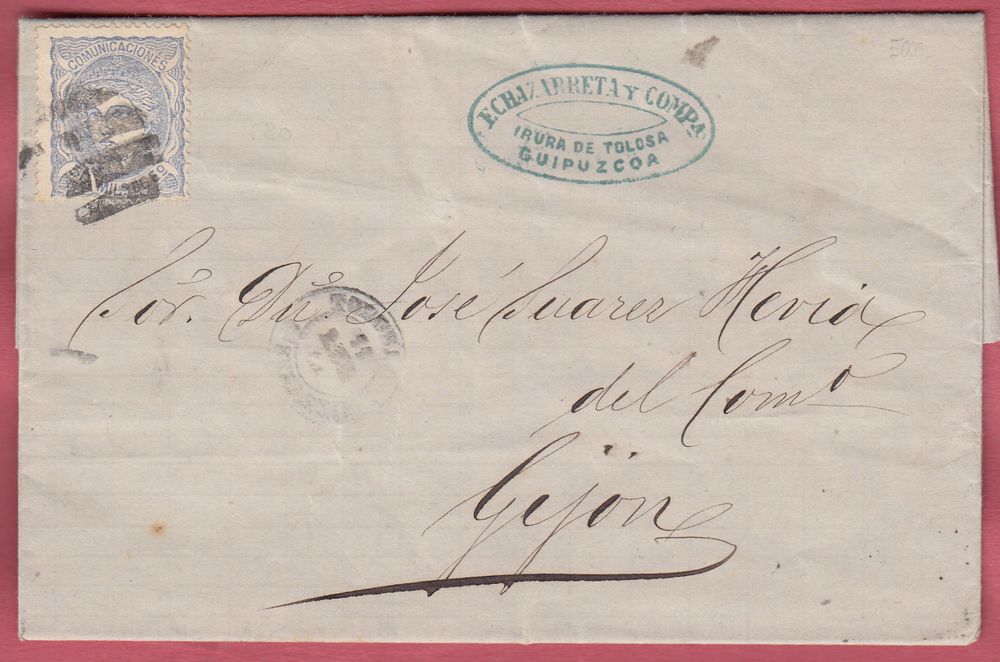 COMUNICACIONES
ECHAZARRETA Y COMPA
IRURA DE TOLOSA
GUIPUZCOA
Sör. Dn José Suarez Hevia
del Como
Gijón
11